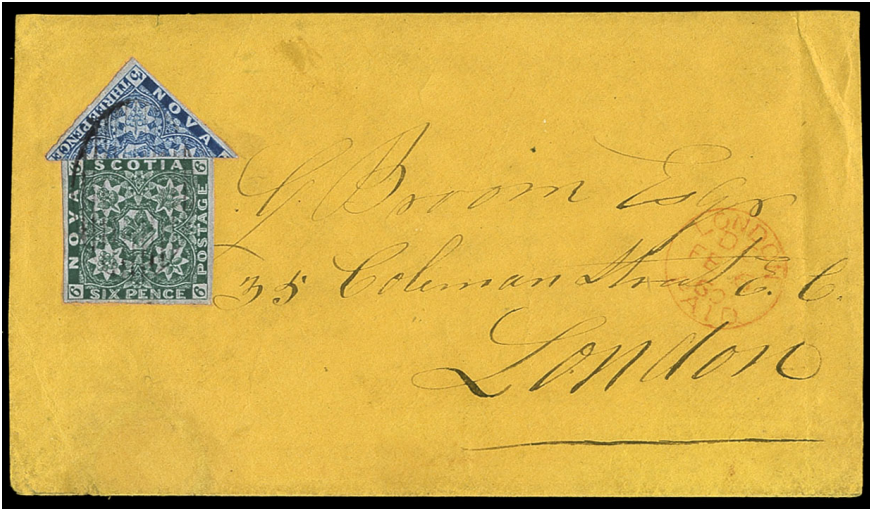 THREE PENCE
NOVA
NOVA SCOTIA POSTAGE
SIX PENCE
6 6 6 6
G Broom Esqr
35 Coleman Street E. C.
London
LONDON
PAID